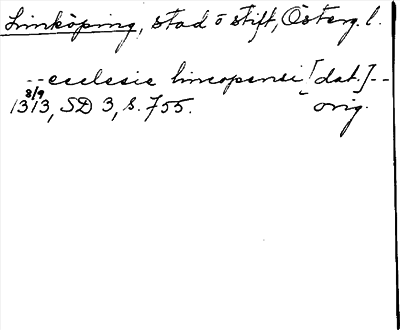 Linköping, stad o stift, Österg. l.
-- ecclesie lincopensi [dat.] --
8/9
1313, SD 3, s. 755. orig.